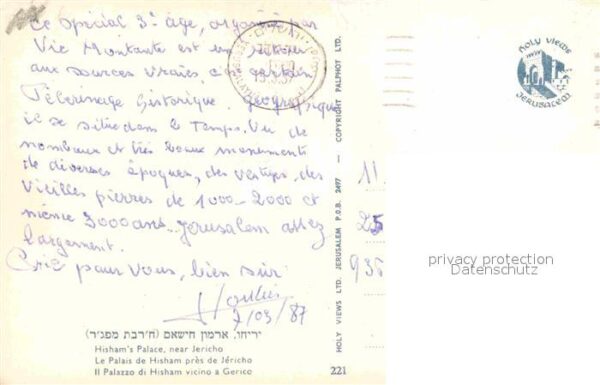 Ce Spécial 3e âge, organisé par
Vie Montante est un retour
aux sources vraies, c'est certain
Pèlerinage historique. géographique
il se situe dans le Temps. Vu de
nombreux et très beaux monuments
de diverses époques, des vestiges, des
vieilles pierres de 1000 - 2000 et
même 3000 ans. Jerusalem assez
largement.
Prié pour vous, bien sûr
7/03/87
יריחו, ארמון חישאם (ח'רבת מפג'ר)
Hisham's Palace, near Jericho
Le Palais de Hisham près de Jéricho
Il Palazzo di Hisham vicino a Gerico
221
HOLY VIEWS LTD. JERUSALEM P.O.B. 2497 — COPYRIGHT PALPHOT LTD.
HOLY VIEWS
JERUSALEM
11
25
935
privacy protection
Datenschutz